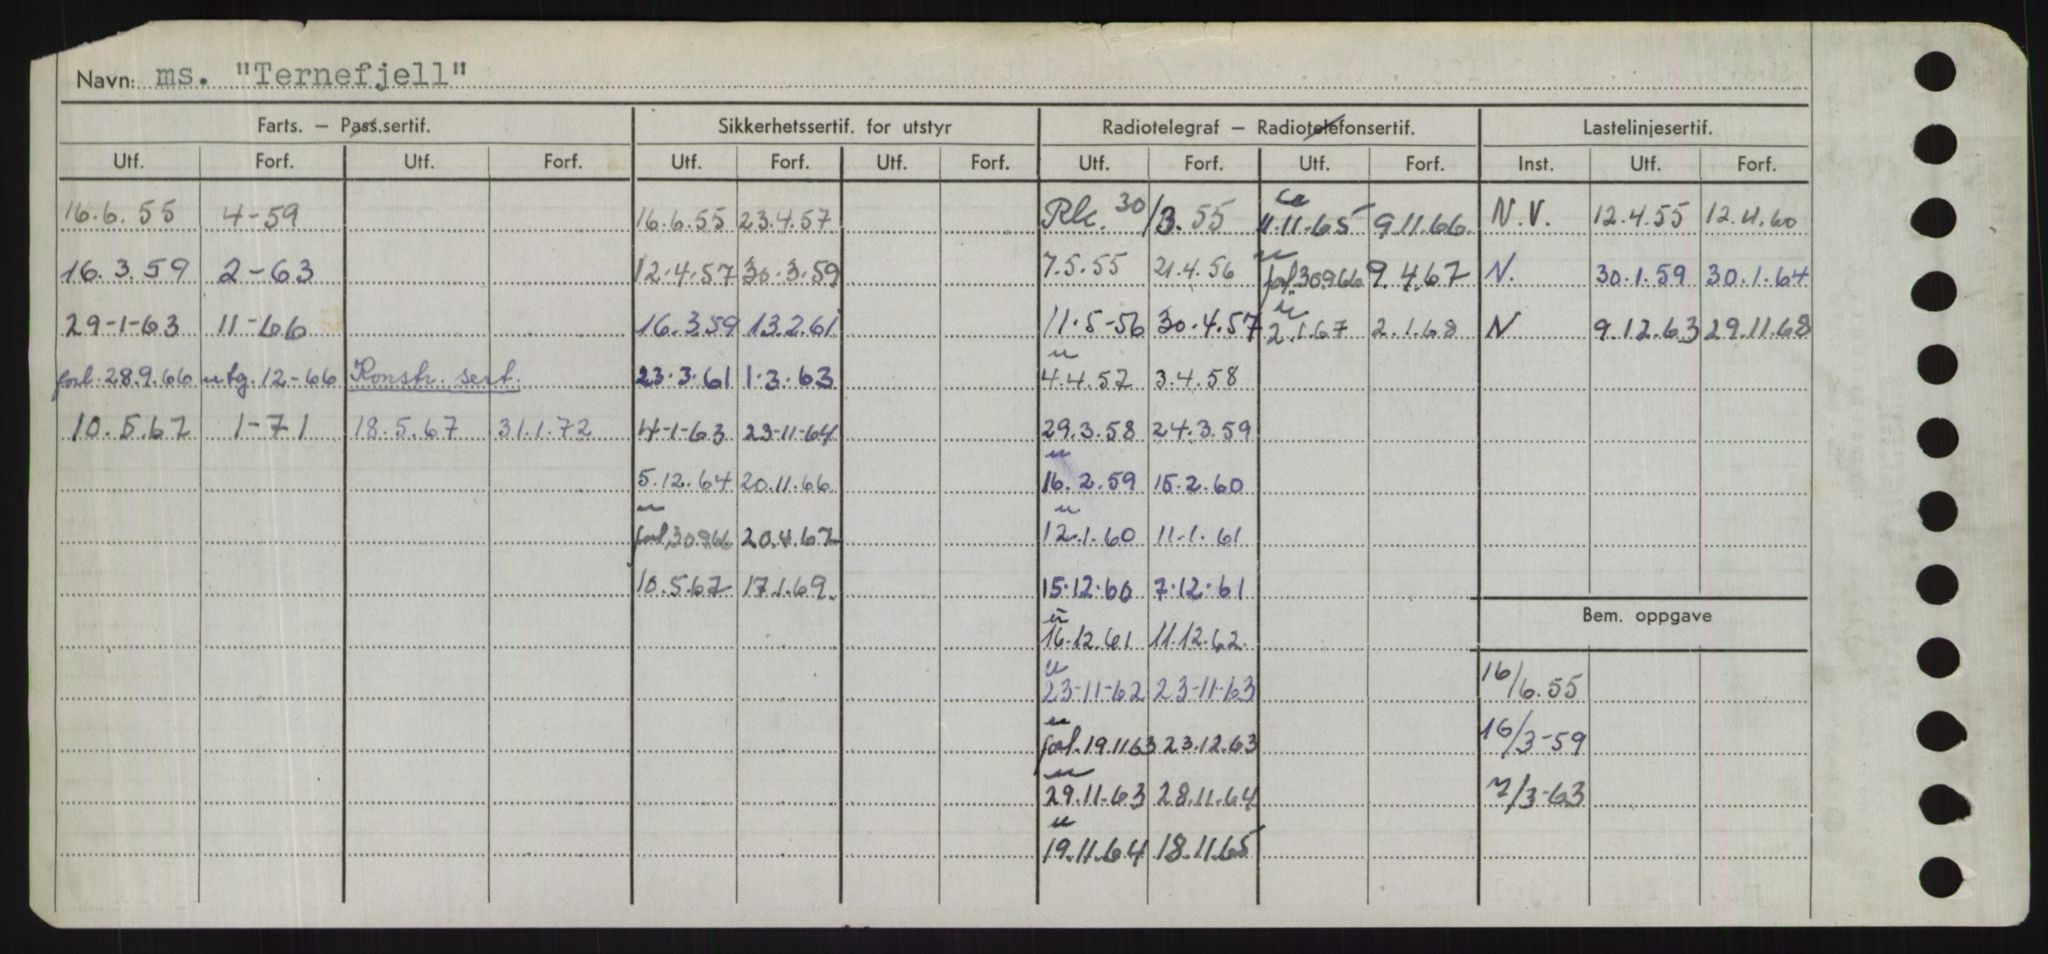 Navn: ms. "Ternefjell"
Farts. – Pass.sertif. Sikkerhetssertif. for utstyr Radiotelegraf – Radiotelefonsertif. Lastelinjesertif.
Utf. Forf. Utf. Forf. Utf. Forf. Utf. Forf. Utf. Forf. Utf. Forf. Inst. Utf. Forf.
16.6.55 4-59 16.6.55 23.4.57 Rk. 30/3.55 11.11.65 9.11.66. N.V. 12.4.55 12.4.60
16.3.59 2-63 12.4.57 30.3.59 7.5.55 21.4.56 forl.30.9.66 9.4.67 N. 30.1.59 30.1.64
29-1-63 11-66 16.3.59 13.2.61 11.5-56 30.4.57 2.1.67 2.1.68 N 9.12.63 29.11.68
forl.28.9.66 utg.12-66 Konstr. sert. 23.3.61 1.3.63 4.4.57 3.4.58
10.5.67 1-71 18.5.67 31.1.72 4-1-63 23-11-64 29.3.58 24.3.59
5.12.64 20.11.66 16.2.59 15.2.60
forl.30.9.66 20.4.67 12.1.60 11.1.61
10.5.67 17.1.69. 15.12.60 7.12.61
Bem. oppgave
16.12.61 11.12.62.
23-11-62 23-11-63 16/6.55
forl.19.11.63 23.12.63 16/3-59
29.11.63 28.11.64 7/3-63
19.11.64 18.11.65